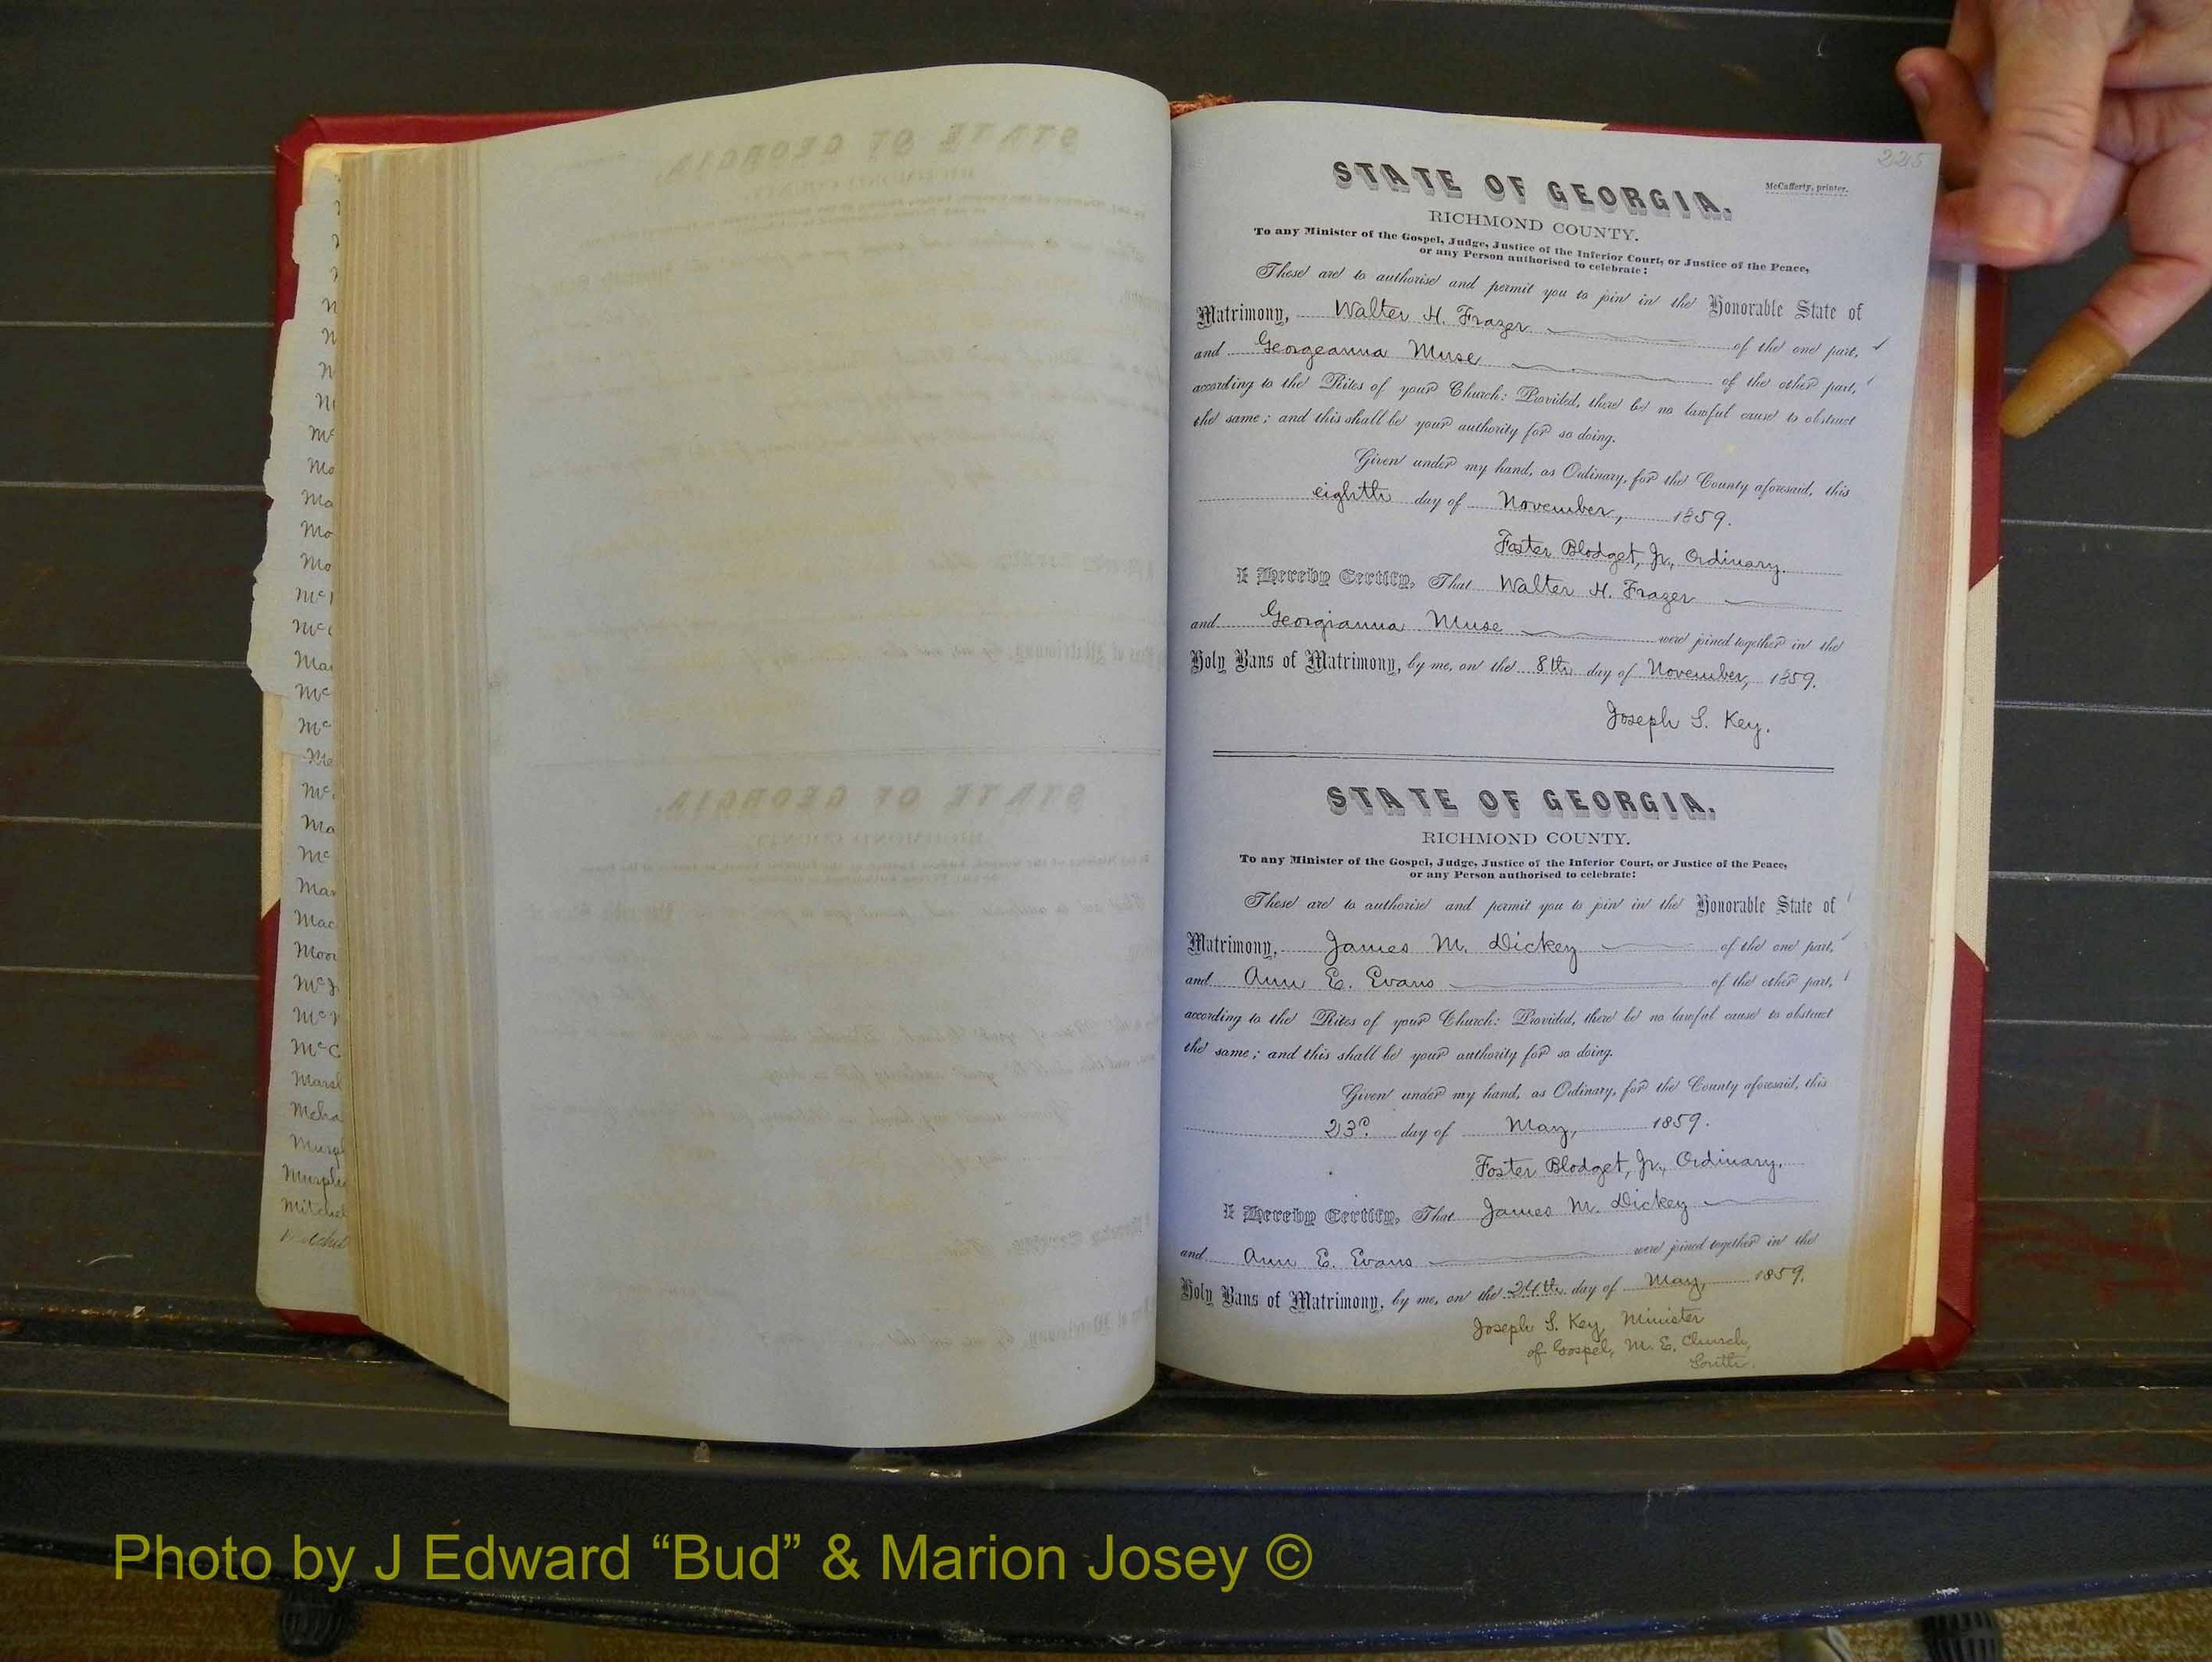 225
STATE OF GEORGIA.
McCafferty, printer.
RICHMOND COUNTY.
To any Minister of the Gospel, Judge, Justice of the Inferior Court, or Justice of the Peace,
or any Person authorised to celebrate:
These are to authorise and permit you to join in the Honorable State of
Matrimony, Walter H. Frazer of the one part,
and Georgeanna Muse of the other part,
according to the Rites of your Church: Provided, there be no lawful cause to obstruct
the same; and this shall be your authority for so doing.
Given under my hand, as Ordinary, for the County aforesaid, this
eighth day of November, 1859.
Foster Blodget, Jr., Ordinary.
I Hereby Certify, That Walter H. Frazer
and Georgianna Muse were joined together in the
Holy Bans of Matrimony, by me, on the 8th day of November, 1859.
Joseph S. Key.
STATE OF GEORGIA.
RICHMOND COUNTY.
To any Minister of the Gospel, Judge, Justice of the Inferior Court, or Justice of the Peace,
or any Person authorised to celebrate:
These are to authorise and permit you to join in the Honorable State of
Matrimony, James M. Dickey of the one part,
and Ann E. Evans of the other part,
according to the Rites of your Church: Provided, there be no lawful cause to obstruct
the same; and this shall be your authority for so doing.
Given under my hand, as Ordinary, for the County aforesaid, this
23d day of May, 1859.
Foster Blodget, Jr., Ordinary.
I Hereby Certify, That James M. Dickey
and Ann E. Evans were joined together in the
Holy Bans of Matrimony, by me, on the 24th day of May, 1859.
Joseph S. Key, Minister
of Gospel, M. E. Church,
South.
Photo by J Edward “Bud” & Marion Josey ©